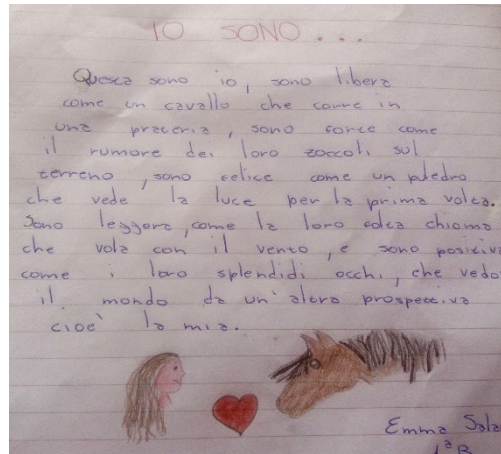 IO SONO...
Questa sono io, sono libera
come un cavallo che corre in
una prateria, sono forte come
il rumore dei loro zoccoli sul
terreno, sono felice come un puledro
che vede la luce per la prima volta.
Sono leggera, come la loro folta chioma
che vola con il vento, e sono positiva
come i loro splendidi occhi, che vedo
il mondo da un'altra prospettiva
cioè la mia.
Emma Sala
1ªB